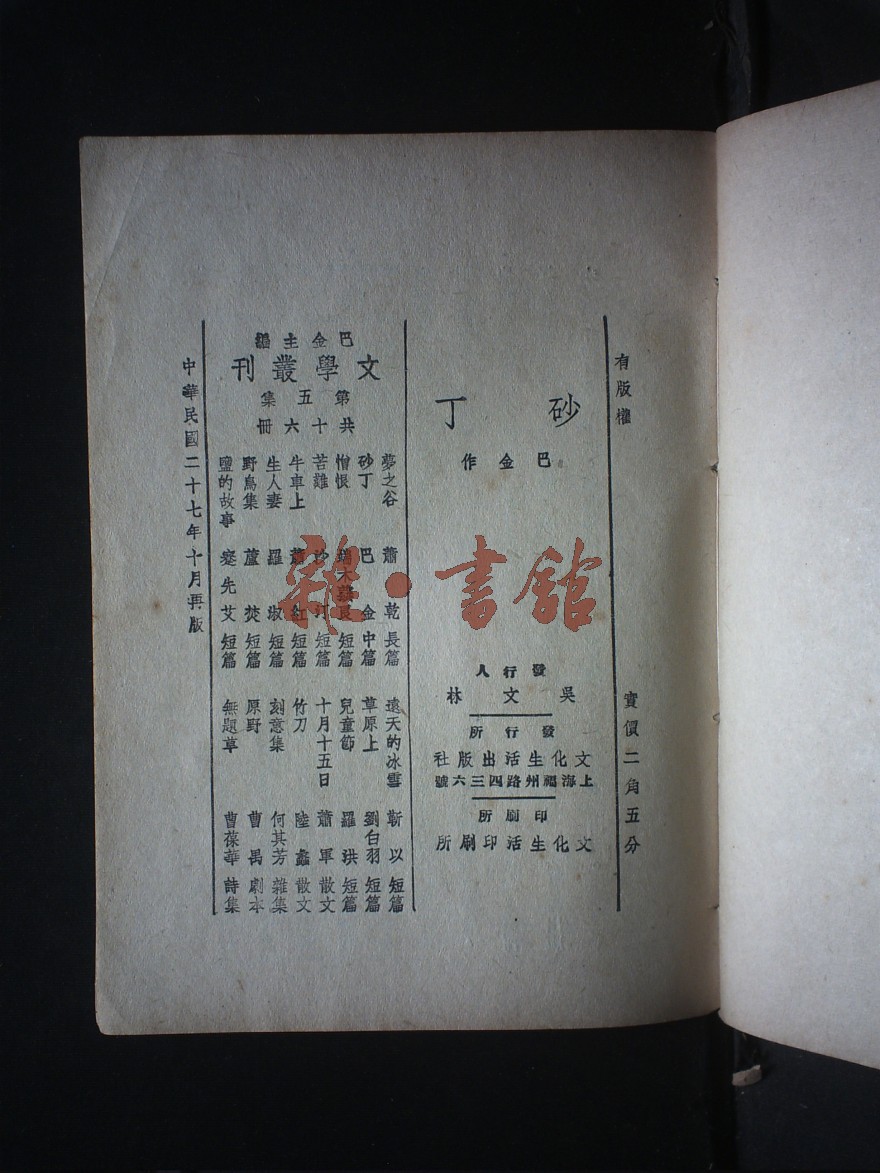 有版權
實價二角五分
砂丁
巴金作
發行人
吳文林
發行所
文化生活出版社
上海福州路四三六號
印刷所
文化生活印刷所
巴金主編
文學叢刊
第五集
共十六冊
夢之谷 蕭乾 長篇
砂丁 巴金 中篇
憎恨 端木蕻良 短篇
苦難 沙汀 短篇
牛車上 蕭紅 短篇
生人妻 羅淑 短篇
野鳥集 蘆焚 短篇
鹽的故事 蹇先艾 短篇
遠天的冰雪 靳以 短篇
草原上 劉白羽 短篇
兒童節 羅洪 短篇
十月十五日 蕭軍 散文
竹刀 陸蠡 散文
刻意集 何其芳 雜集
原野 曹禺 劇本
無題草 曹葆華 詩集
中華民國二十七年十月再版
雜·書館